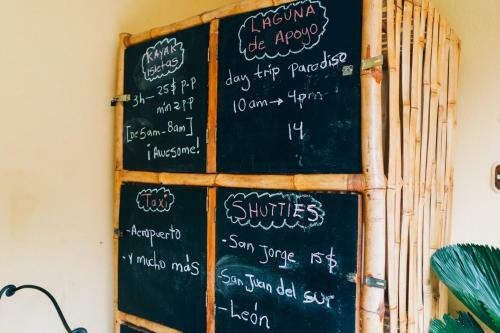 KAYAK
isletas
3h — 25$ p.p
min 2 pp
[De 5am - 8am]
¡Awesome!
LAGUNA
de Apoyo
day trip Paradiso
10am → 4pm
14
Taxi
- Aeropuerto
- y mucho más
SHUTTIES
- San Jorge 15$
- San Juan del sur
- León